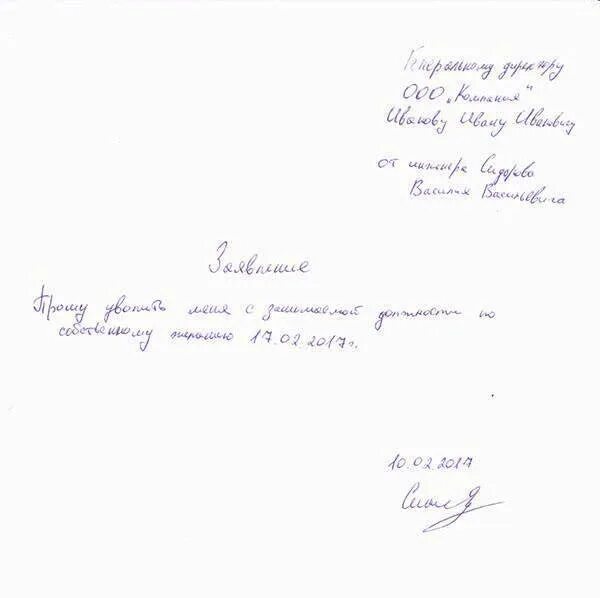 Генеральному директору
ООО „Компания"
Иванову Ивану Ивановичу
от инженера Сидорова
Василия Васильевича
Заявление
Прошу уволить меня с занимаемой должности по
собственному желанию 17.02.2017г.
10.02.2017